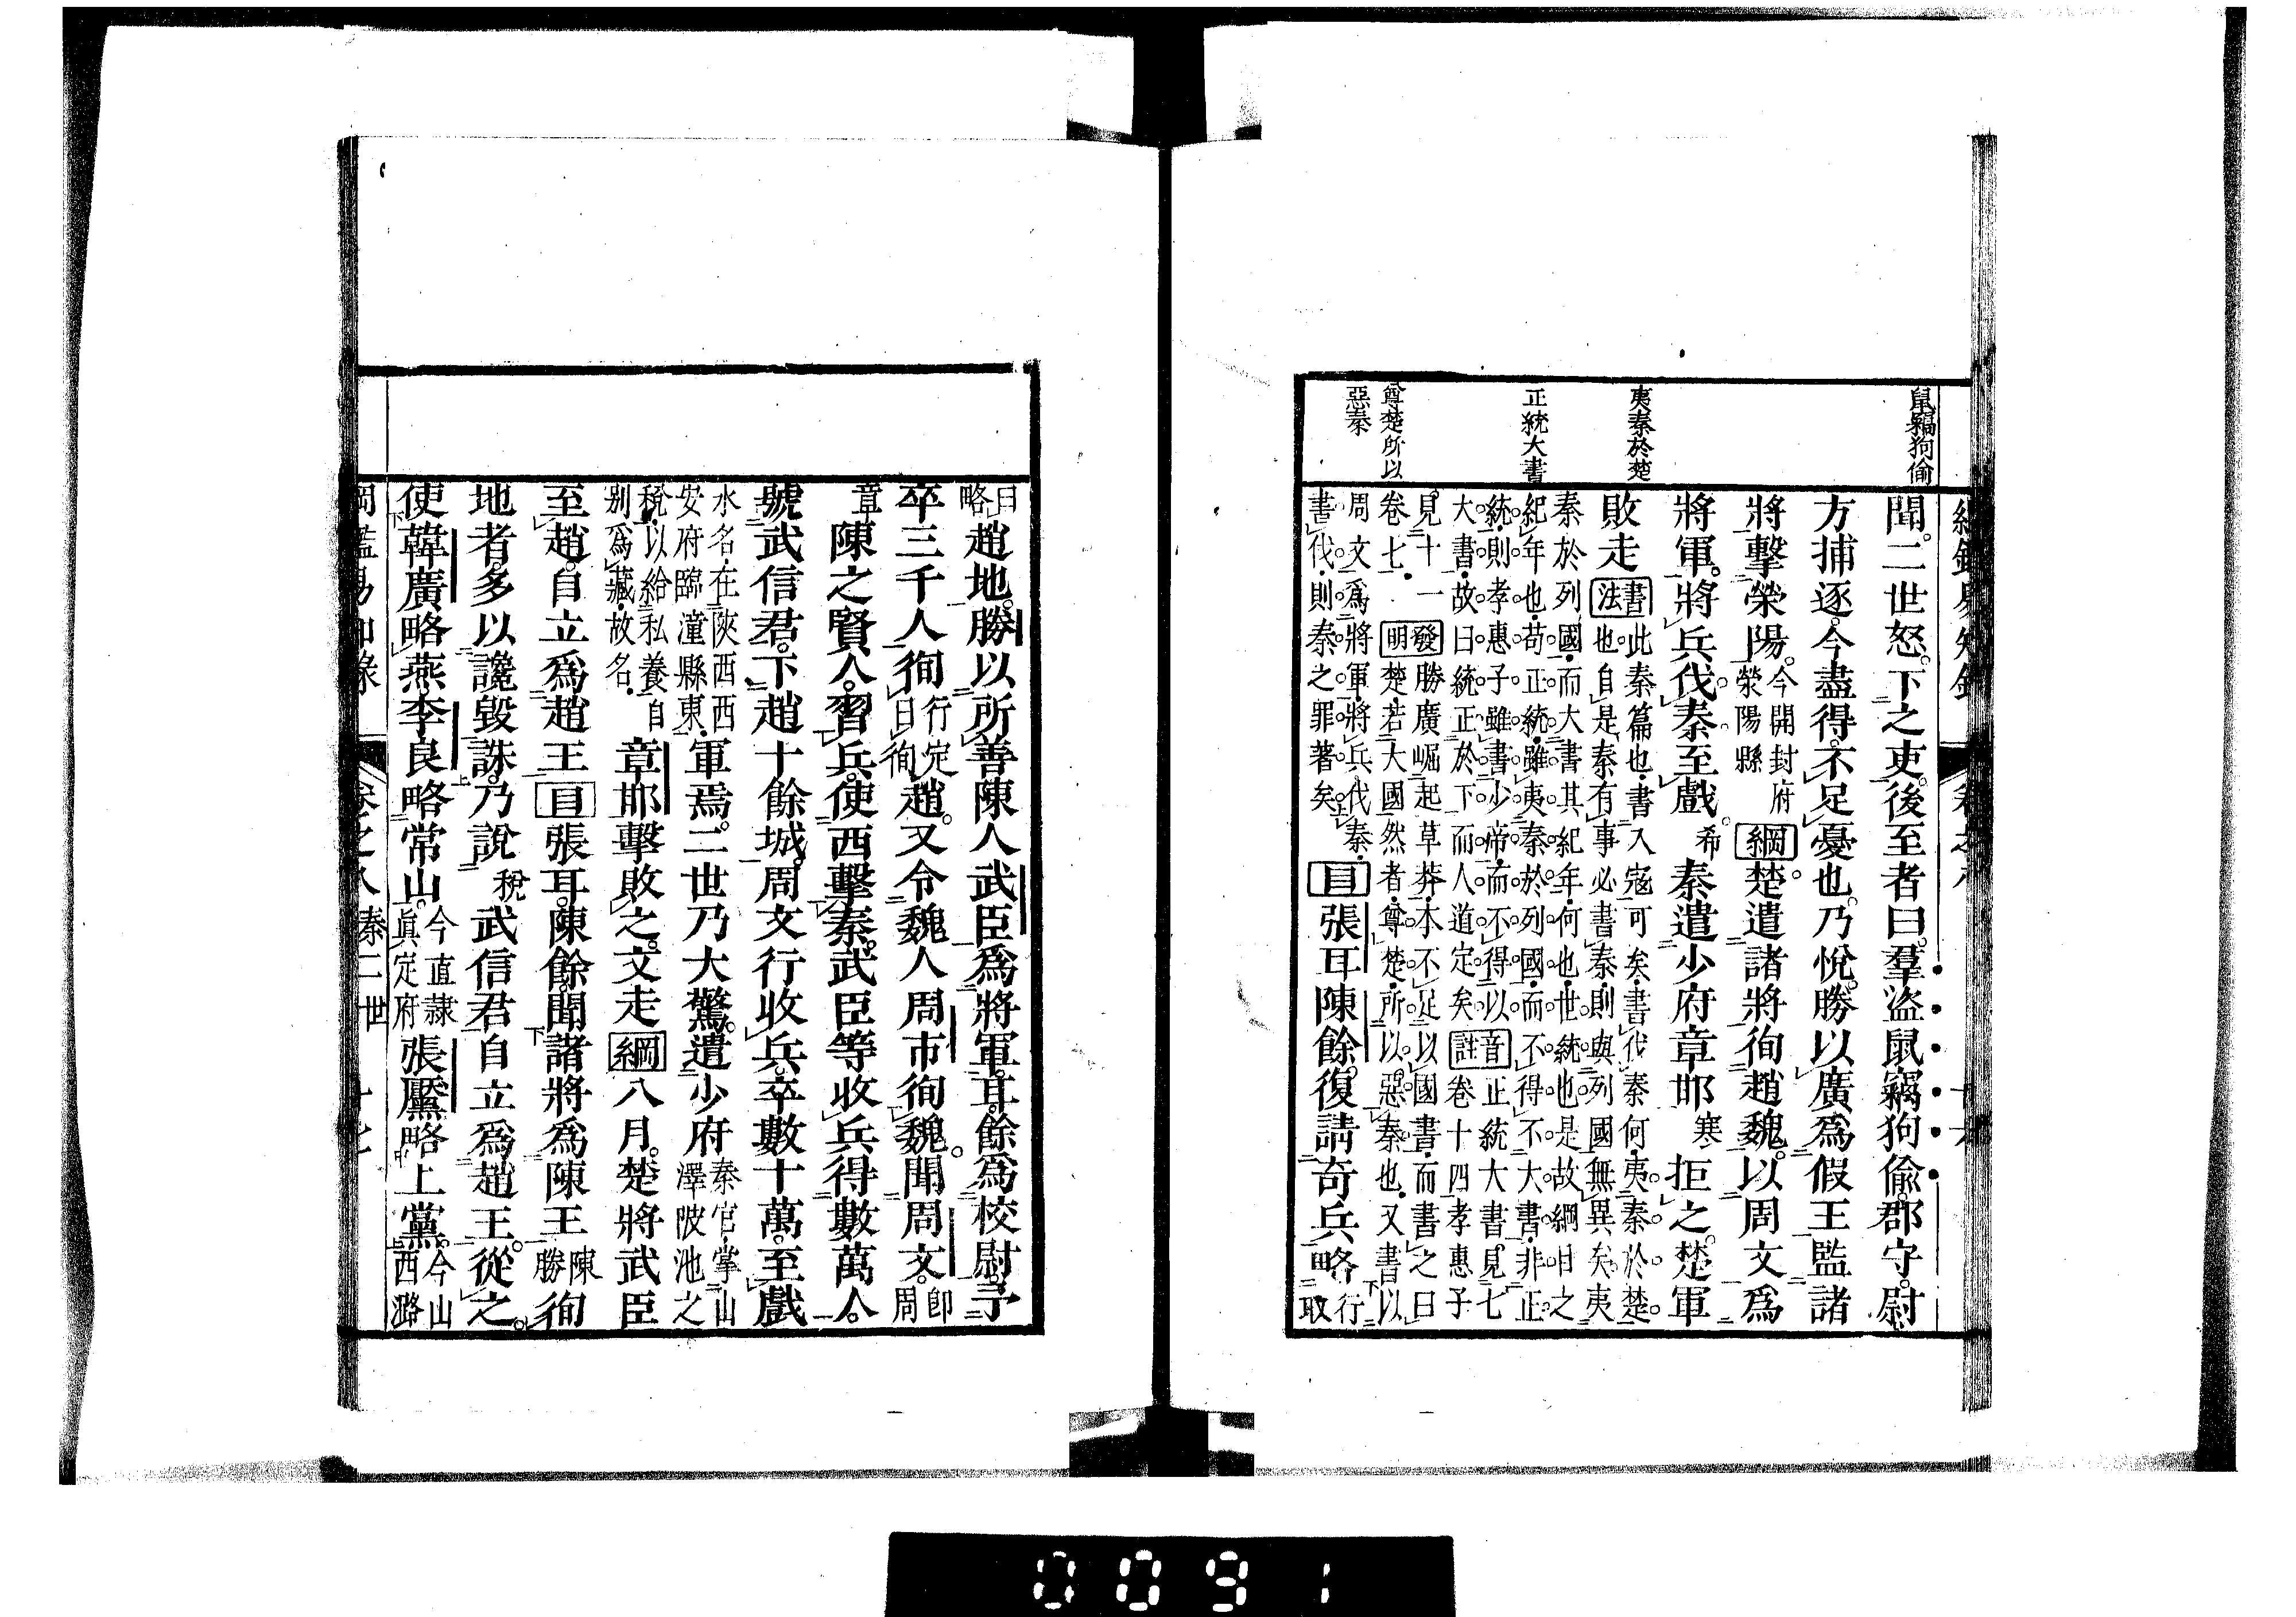 鼠竊狗偷
夷秦於楚
正統大書
尊楚所以
惡秦
聞。二世怒。下之吏。後至者曰。羣盜鼠竊狗偷。郡守。尉
方捕逐。今盡得。不足憂也。乃悅。勝以廣爲假王監諸
將擊滎陽。今開封府滎陽縣 綱楚遣諸將徇趙魏。以周文爲
將軍。將兵伐秦。至戲。希秦遣少府章邯寒拒之。楚軍
敗走
書法此秦篇也。書入寇可矣。書伐秦何。夷秦於楚
也。自是秦有事必書秦。則與列國無異矣。夷
秦於列國。而大書其紀年。何也。世統也。是故綱目之
紀年也。苟正統。雖夷秦於列國。而不得不大書。非正
統。則孝惠子雖書少帝。而不得以
大書。故曰統正於下而人道定矣
音註正統大書。見七
卷十四孝惠子
見十一
卷七。
發明勝廣崛起草莽。本不足以國書。而書之曰
楚。若大國然者。尊楚。所以惡秦也。又書以
周文爲將軍。將兵伐秦。
書伐。則秦之罪著矣。
目張耳陳餘。復請奇兵略行取
曰略趙地。勝以所善陳人武臣爲將軍。耳餘爲校尉。予
卒三千人徇行定曰徇趙。又令魏人周市徇魏。聞周文。卽周
章陳之賢人。習兵。使西擊秦。武臣等收兵得數萬人。
號武信君。下趙十餘城。周文行收兵。卒數十萬。至戲
水名。在陝西西安府臨潼縣東。軍焉。二世乃大驚。遣少府秦官。掌山澤陂池之
稅。以給私養。自别爲藏。故名。章邯擊敗之。文走綱八月。楚將武臣
至趙。自立爲趙王目張耳。陳餘。聞諸將爲陳王陳勝徇
地者。多以讒毀誅。乃說稅武信君自立爲趙王。從之。
使韓廣略燕。李良略常山。今直隸眞定府張黶略上黨。今山西潞
綱鑑易知錄 卷之八 秦二世 十七